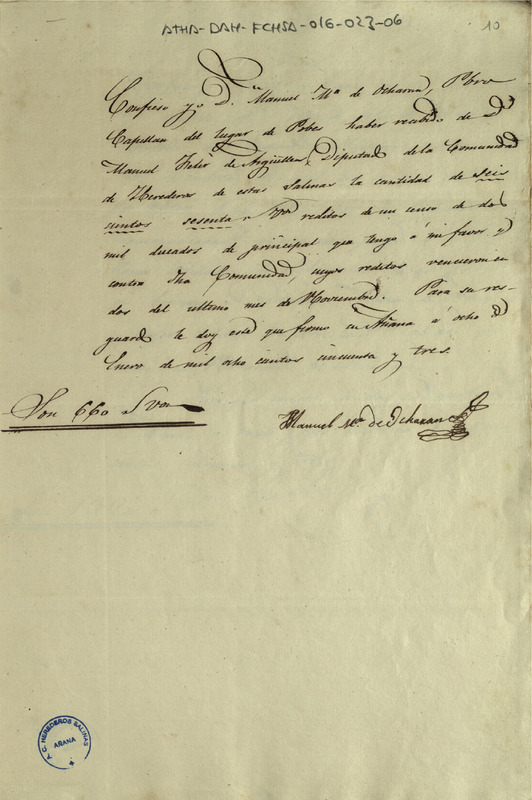 ATHA-DAH-FCHSA-016-023-06
10
Confieso yo Dn. Manuel Ma. de Ocharan, Pbro
Capellan del lugar de Pobes haber recibido de Dn
Manuel Felix de Argüelles, Diputado de la Comunidad
de Herederos de estas Salinas la cantidad de seis
cientos sesenta rs von reditos de un censo de dos
mil ducados de principal que tengo á mi favor y
contra dha Comunidad, cuyos reditos vencieron en
dos del ultimo mes de Noviembre. Para su res-
guardo le doy este que firmo en Añana á ocho de
Enero de mil ocho cientos cincuenta y tres.
Son 660 rs von
Manuel Ma. de Ocharan
C. HEREDEROS SALINAS
AÑANA